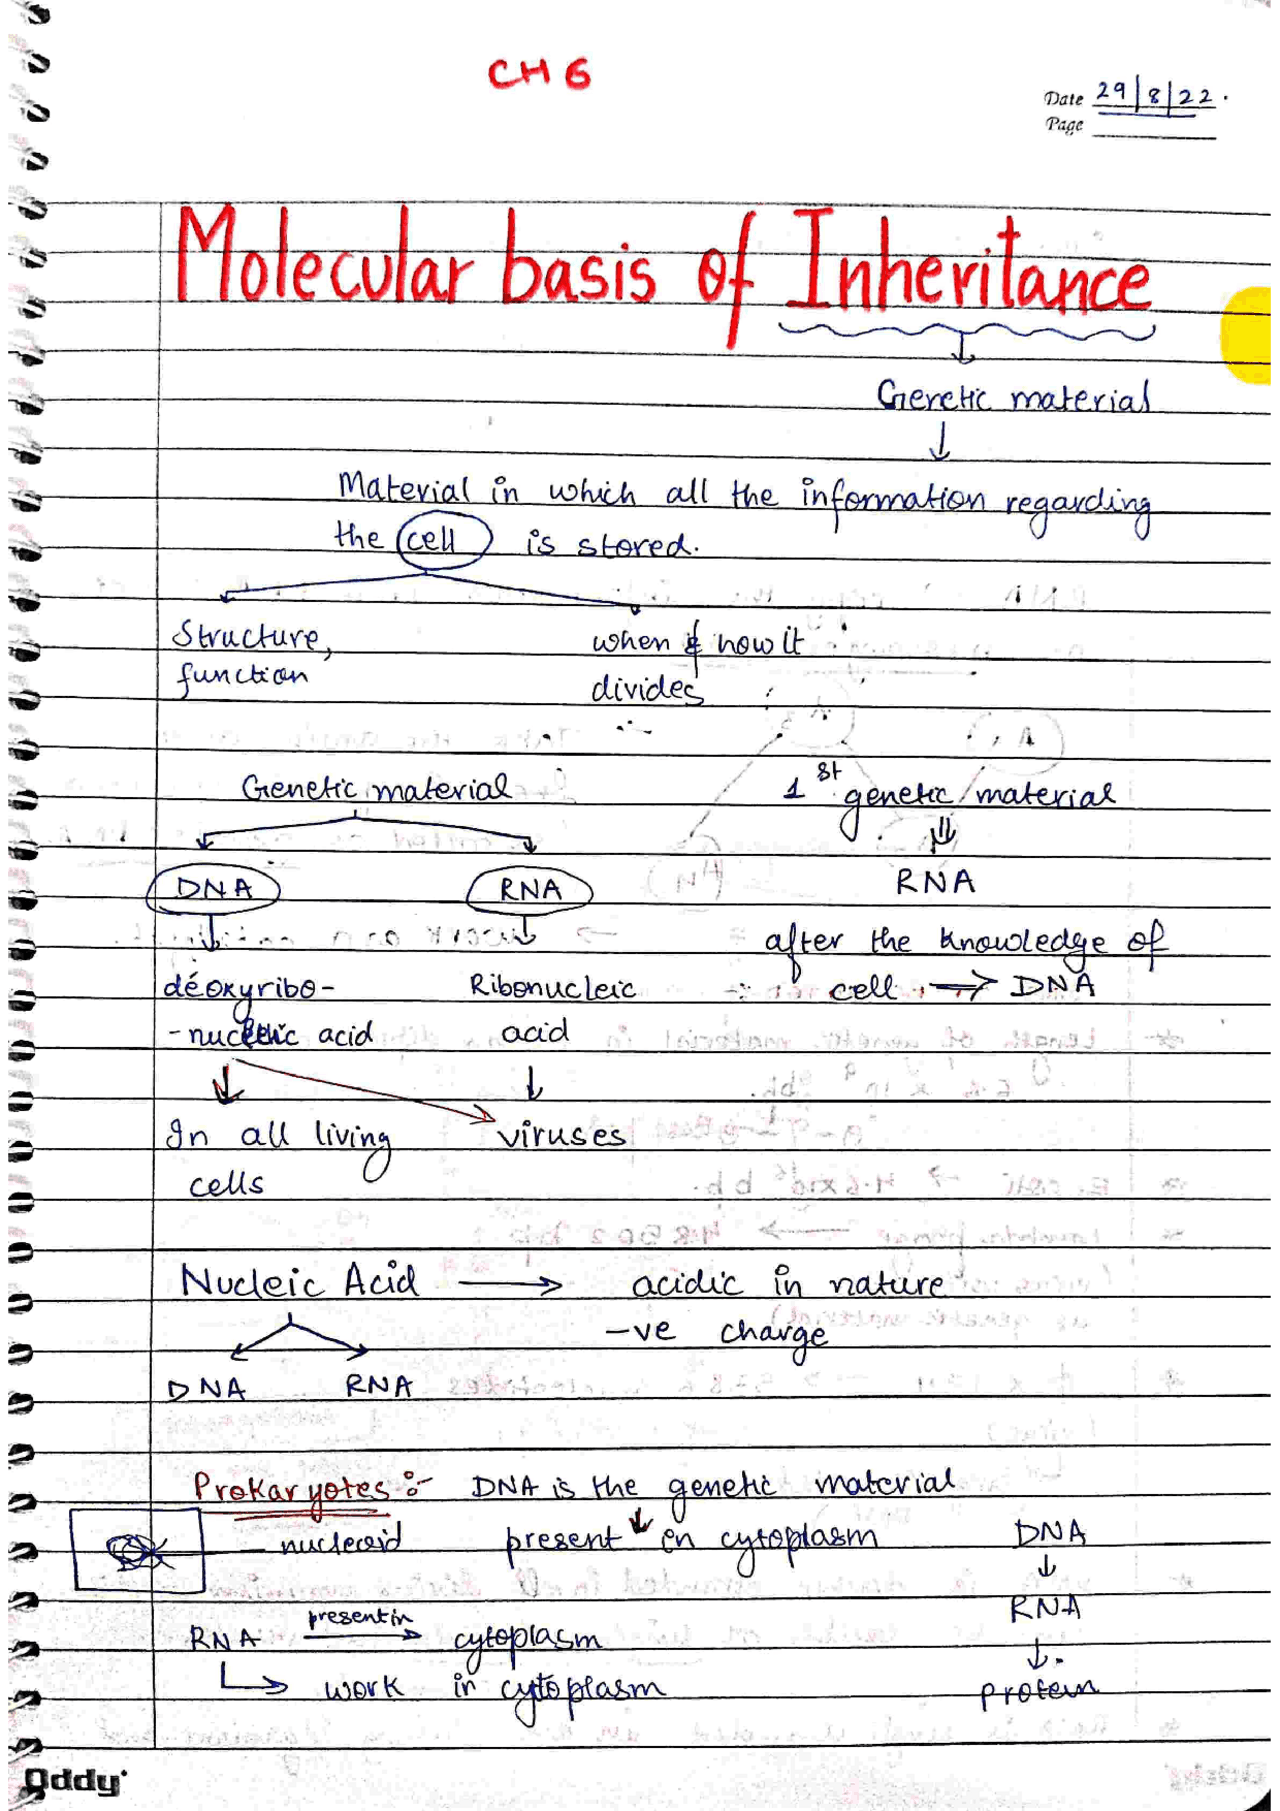 CH 6
Date 29/8/22.
Page
Molecular basis of Inheritance
Genetic material
Material in which all the information regarding
the cell is stored.
Structure, when & how it
function divides
Genetic material 1st genetic material
DNA RNA RNA
deoxyribo- Ribonucleic after the knowledge of
cell ⇒ DNA
-nucleic acid acid
In all living viruses
cells
Nucleic Acid → acidic in nature
-ve charge
DNA RNA
Prokaryotes :- DNA is the genetic material
nucleoid present in cytoplasm DNA
RNA
RNA present in → cytoplasm
work in cytoplasm protein
Oddy